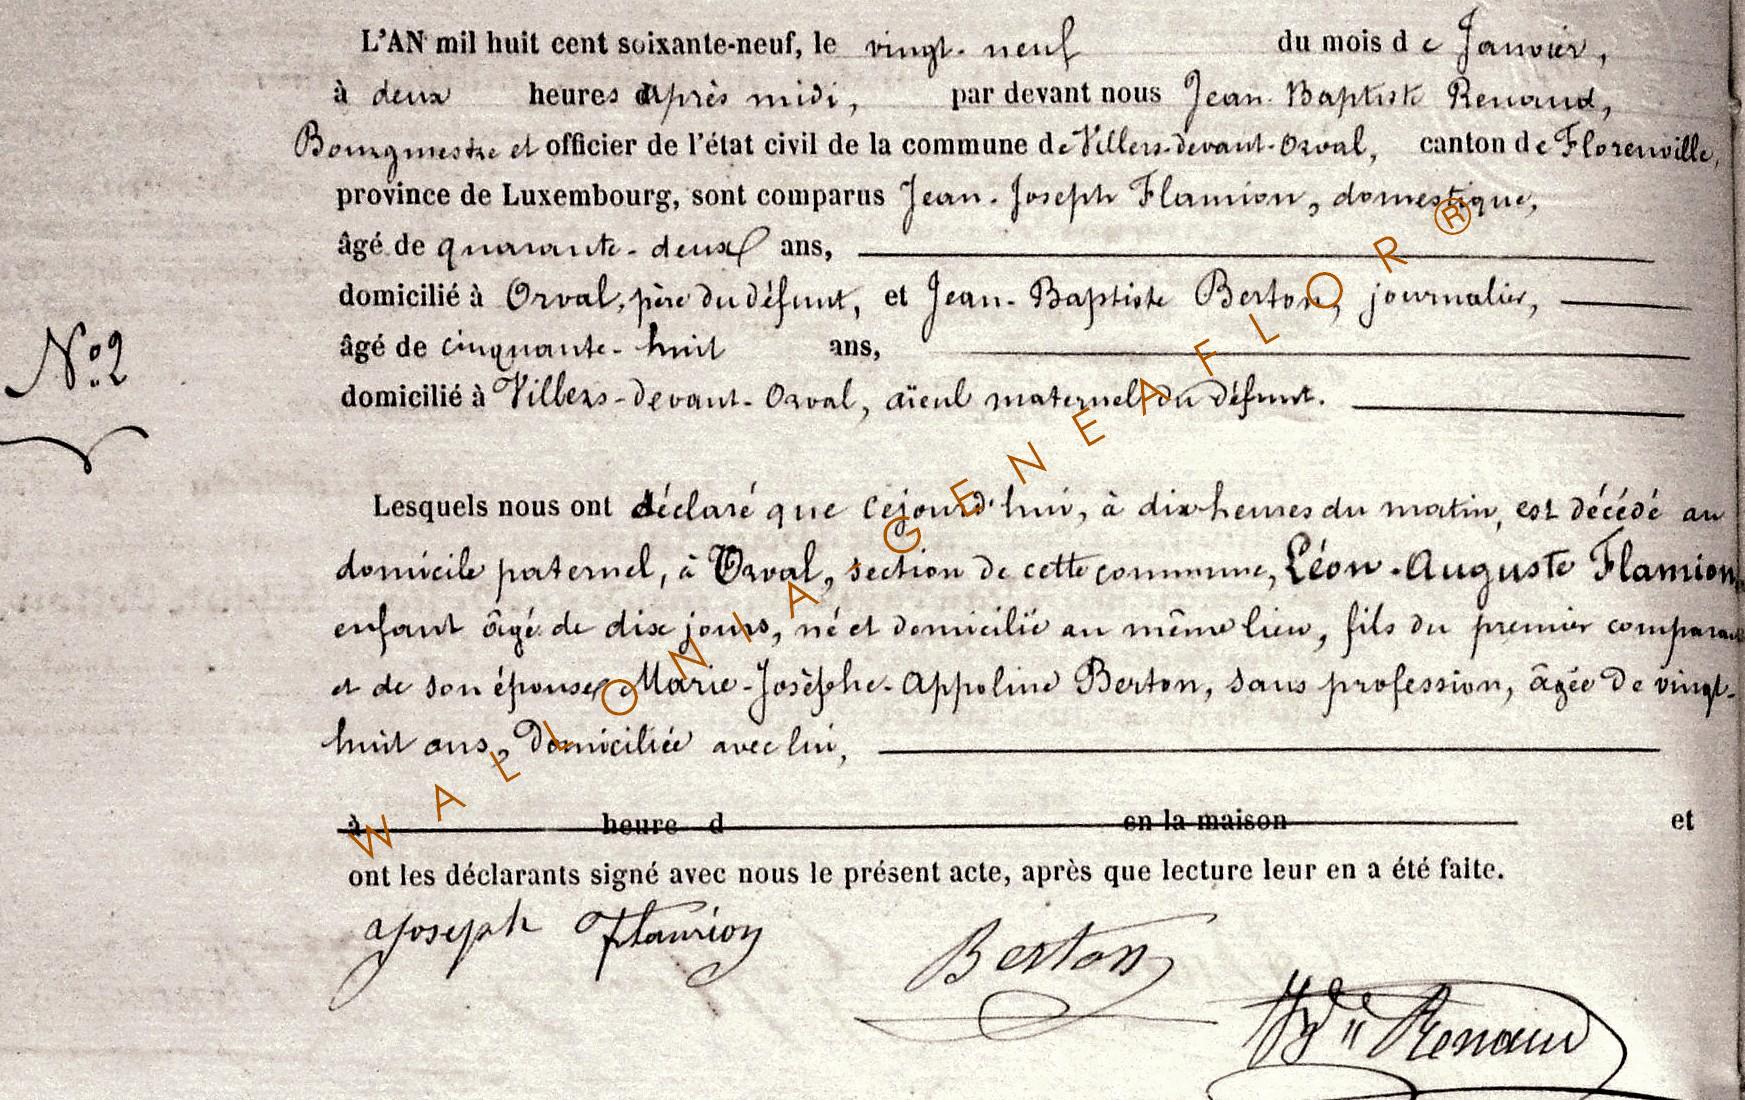 L'AN mil huit cent soixante-neuf, le vingt-neuf du mois de Janvier,
à deux heures après midi, par devant nous Jean-Baptiste Renaud,
Bourgmestre et officier de l'état civil de la commune de Villers-devant-Orval, canton de Florenville,
province de Luxembourg, sont comparus Jean-Joseph Flamion, domestique,
âgé de quarante-deux ans,
domicilié à Orval, père du défunt, et Jean-Baptiste Berton, journalier,
N° 2
âgé de cinquante-huit ans,
domicilié à Villers-devant-Orval, aïeul maternel du défunt.
Lesquels nous ont déclaré que cejourd'hui, à dix heures du matin, est décédé au
domicile paternel, à Orval, section de cette commune, Léon-Auguste Flamion,
enfant âgé de dix jours, né et domicilié au même lieu, fils du premier comparant
et de son épouse Marie-Josèphe-Appoline Berton, sans profession, âgée de vingt-
huit ans, domiciliée avec lui,
à heure d en la maison et
ont les déclarants signé avec nous le présent acte, après que lecture leur en a été faite.
Joseph Flamion Berton
Renaud
WALLONIA GENEAFLOR ®